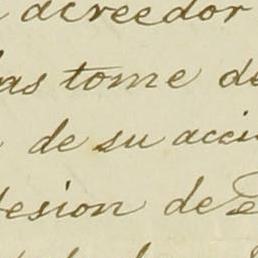 acreedor
las tome de
de su acci
esion de e